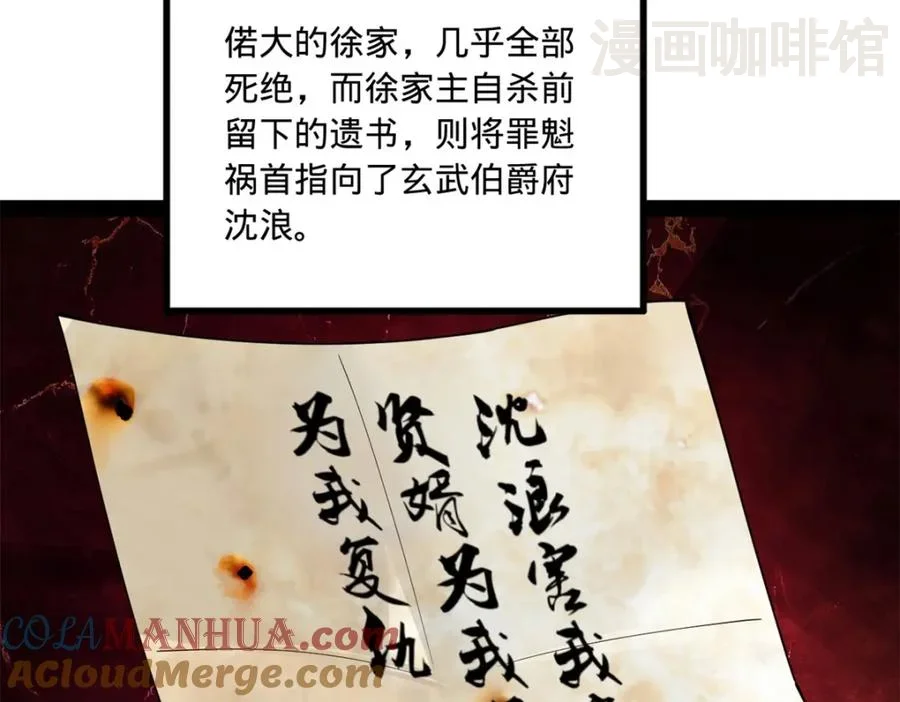 漫画咖啡馆
偌大的徐家，几乎全部
死绝，而徐家主自杀前
留下的遗书，则将罪魁
祸首指向了玄武伯爵府
沈浪。
沈浪害我
贤婿为我
为我复仇
COLAMANHUA.com
AcloudMerge.com